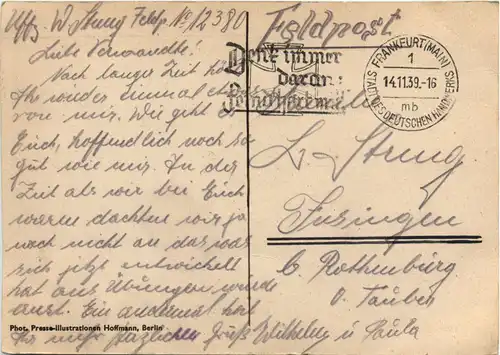 Uffz. W. Strung Feldp. No 12380
Feldpost
Liebe Verwandte!
Nach langer Zeit hört
Ihr wieder einmal etwas
von mir. Wie geht es
Euch, hoffendlich noch so
gut wie mir. In der
Zeit als wir bei Euch
waren dachten wir ja
noch nicht an das was
sich jetzt entwickelt
hat aus Übungen wurde
ernst. Ein andermal hört
Ihr mehr herzlichen Gruß Wilhelm u. Paula
Denk immer
daran:
FRANKFURT (MAIN)
1
14.11.39.-16
mb
STADT DES DEUTSCHEN HANDWERKS
L. Strung
b. Rothenburg
o. Tauber
Phot. Presse-Illustrationen Hoffmann, Berlin